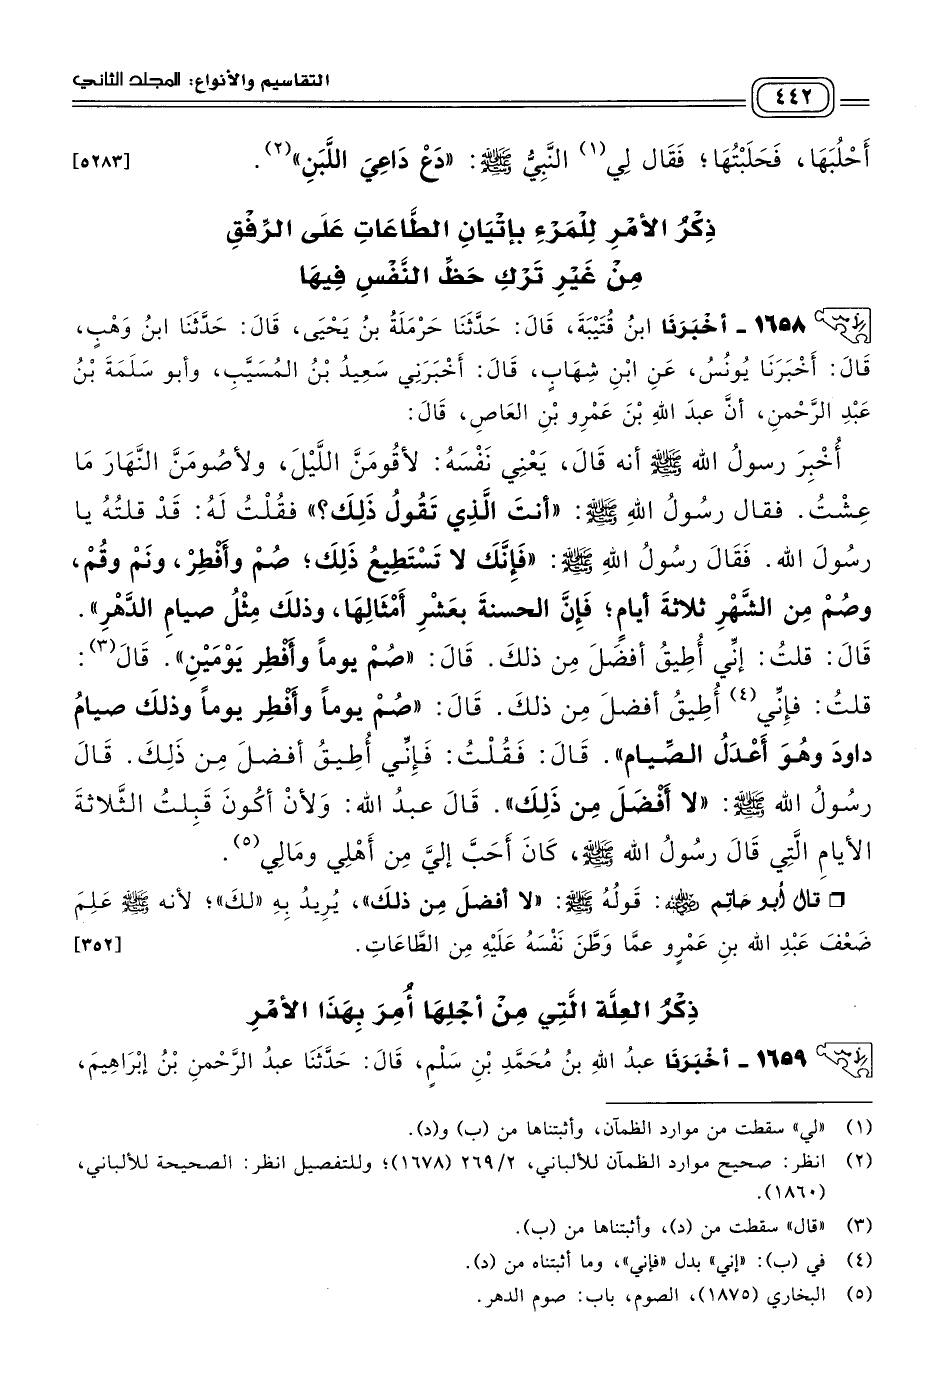 التقاسيم والأنواع: المجلد الثاني
٤٤٢
أَحْلُبَهَا، فَحَلَبْتُهَا؛ فَقَال لِي(١) النَّبِيُّ ﷺ: «دَعْ دَاعِيَ اللَّبَنِ»(٢). [٥٢٨٣]
ذِكْرُ الأمْرِ لِلْمَرْءِ بإتْيَانِ الطَّاعَاتِ عَلَى الرِّفْقِ
مِنْ غَيْرِ تَرْكِ حَظِّ النَّفْسِ فِيهَا
١٦٥٨ - أخْبَرَنَا ابنُ قُتَيْبَةَ، قَالَ: حَدَّثَنَا حَرْمَلَةُ بنُ يَحْيَى، قَالَ: حَدَّثَنَا ابنُ وَهْبٍ،
قَالَ: أَخْبَرَنَا يُونُسُ، عَنِ ابْنِ شِهَابٍ، قَالَ: أَخْبَرَنِي سَعِيدُ بْنُ المُسَيَّبِ، وأبو سَلَمَةَ بْنُ
عَبْدِ الرَّحْمنِ، أنَّ عبدَ اللهِ بْنَ عَمْرِو بْنِ العَاصِ، قَالَ:
أُخْبِرَ رسولُ الله ﷺ أنه قَالَ، يَعْنِي نَفْسَهُ: لأقُومَنَّ اللَّيْلَ، ولأصُومَنَّ النَّهَارَ مَا
عِشْتُ. فقال رسُولُ اللهِ ﷺ: «أنتَ الَّذِي تَقُولُ ذَلِكَ؟» فقُلْتُ لَهُ: قَدْ قلتُهُ يا
رسُولَ الله. فَقَالَ رسُولُ اللهِ ﷺ: «فَإنَّكَ لا تَسْتَطِيعُ ذَلِكَ؛ صُمْ وأَفْطِرْ، ونَمْ وقُمْ،
وصُمْ مِن الشَّهْرِ ثلاثةَ أيامٍ؛ فإنَّ الحسنةَ بعَشْرِ أمْثالِهَا، وذلكَ مِثْلُ صيامِ الدَّهْرِ».
قَالَ: قلتُ: إنِّي أُطِيقُ أفضلَ مِن ذلكَ. قَالَ: «صُمْ يوماً وأفْطِر يَوْمَيْنِ». قَالَ(٣):
قلتُ: فإنِّي(٤) أُطِيقُ أفضلَ مِن ذلكَ. قَالَ: «صُمْ يوماً وأفْطِر يوماً وذلكَ صيامُ
داودَ وهُوَ أعْدَلُ الصِّيامِ». قَالَ: فَقُلْتُ: فَإنِّي أُطِيقُ أفضلَ مِن ذَلِكَ. قَالَ
رسُولُ الله ﷺ: «لا أفْضَلَ مِن ذَلِكَ». قَالَ عبدُ الله: وَلأنْ أكُونَ قَبِلتُ الثَّلاثةَ
الأيامِ الَّتِي قَالَ رسُولُ الله ﷺ، كَانَ أَحَبَّ إليَّ مِن أَهْلِي ومَالِي(٥).
❑ قال أبو حاتم ﵁: قَولُهُ ﷺ: «لا أفضلَ مِن ذلكَ»، يُرِيدُ بِهِ «لكَ»؛ لأنه ﷺ عَلِمَ
ضَعْفَ عَبْدِ الله بنِ عَمْرٍو عمَّا وَطَّنَ نَفْسَهُ عَلَيْهِ مِن الطَّاعَاتِ. [٣٥٢]
ذِكْرُ العِلَّة الَّتِي مِنْ أجْلِهَا أُمِرَ بِهَذَا الأمْرِ
١٦٥٩ - أخْبَرَنَا عبدُ اللهِ بنُ مُحَمَّدِ بْنِ سَلْمٍ، قَالَ: حَدَّثَنَا عبدُ الرَّحْمنِ بْنُ إبْرَاهِيمَ،
(١) «لي» سقطت من موارد الظمآن، وأثبتناها من (ب) و(د).
(٢) انظر: صحيح موارد الظمآن للألباني، ٢٦٩/٢ (١٦٧٨)؛ وللتفصيل انظر: الصحيحة للألباني،
(١٨٦٠).
(٣) «قال» سقطت من (د)، وأثبتناها من (ب).
(٤) في (ب): «إني» بدل «فإني»، وما أثبتناه من (د).
(٥) البخاري (١٨٧٥)، الصوم، باب: صوم الدهر.